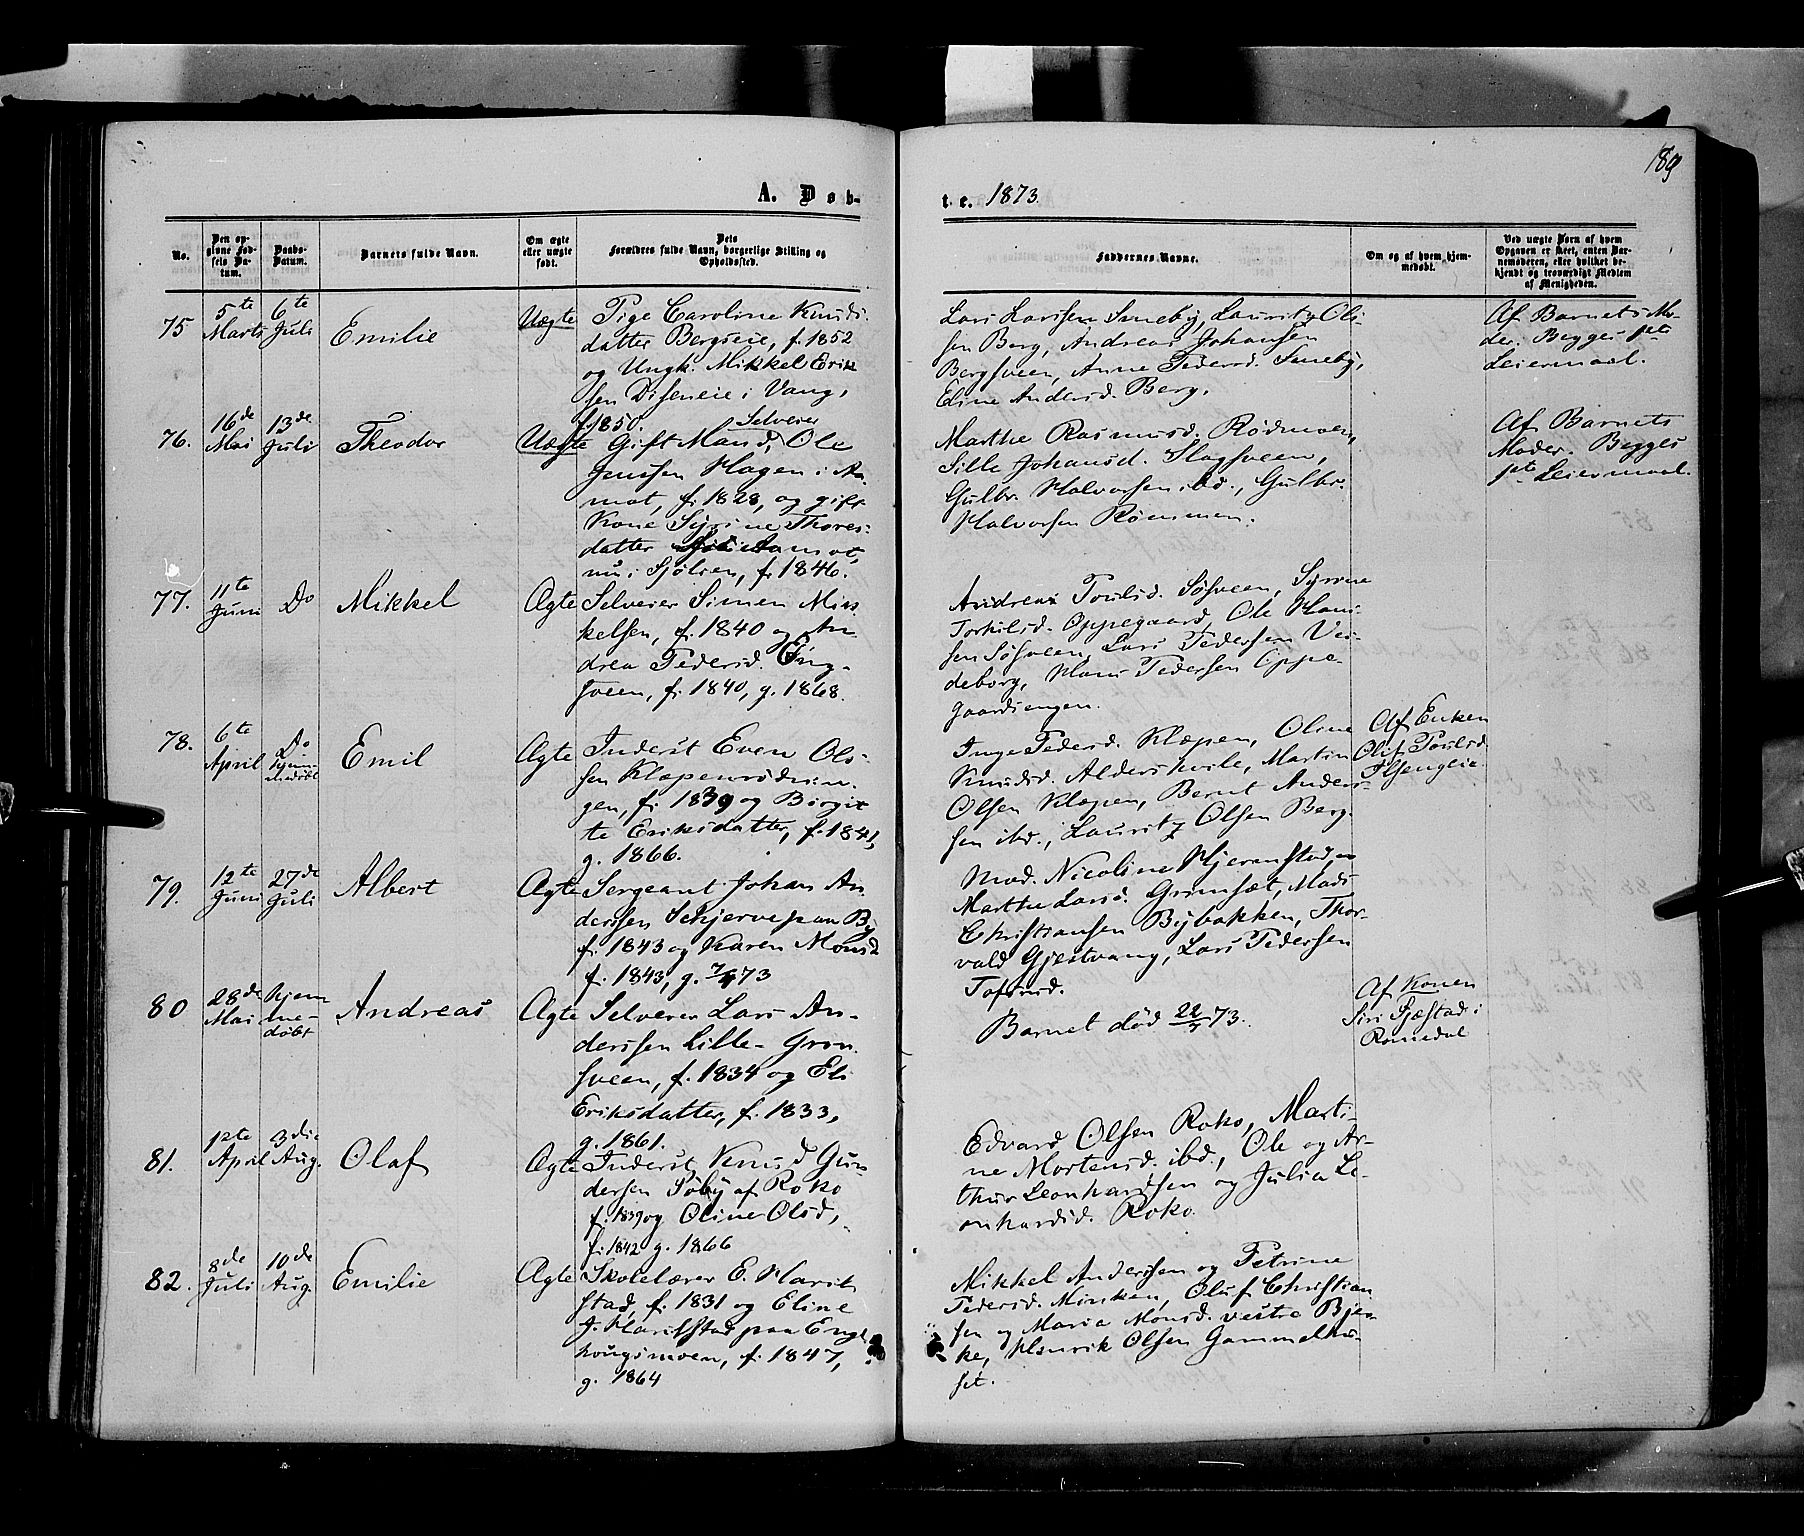 189
A. Døb-
t. e. 1873.
No.
Den op-
givne Fød-
sels Da-
tum.
Daabs-
Datum.
Barnets fulde Navn.
Om ægte
eller uægte
født.
Dets
Forældres fulde Navn, borgerlige Stilling og
Opholdssted.
Faddernes Navne.
Om og af hvem hjem-
medøbt.
Ved uægte Børn af hvem
Opgaven er skeet, enten Bar-
nemoderen, eller hvilket be-
kjendt og troværdigt Medlem
af Menigheden.
75
5te
Marts
6te
Juli
Emilie
Uægte
Pige Caroline Knuds-
datter Bergseie, f. 1852
og Ungk. Mikkel Erik
sen Diseneie i Vang,
f. 1850.
Lars Larssen Smeby, Lauritz Ol-
sen Berg, Andreas Johansen
Bergsveen, Anne Pedersd. Smeby,
Eline Andersd. Berg.
Af Barnets Mo-
der. Begges 1ste
Leiermaal.
76.
16de
Mai
13de
Juli
Theodor
Uægte
Selveier
Gift Mand, Ole
Jenssen Hagen i Aa-
mot, f. 1828, og gift
Kone Syrine Thores-
datter Aamot,
nu i Sjølien, f. 1846.
Marthe Rasmusd. Rødmoen,
Sille Johansd. Slagsveen,
Gulbr. Halvorsen ibd., Gulbr.
Halvorsen Rømmen.
Af Barnets
Moder. Begges
1ste Leiermaal.
77.
11te
Juni
Do
Mikkel
Ægte
Selveier Simen Mik
kelsen, f. 1840 og An
drea Pedersd. Eng-
sveen, f. 1840, g. 1868.
Andreas Poulsd. Søsveen, Syrine
Torkilsd. Oppegaard, Ole Han-
sen Søsveen, Lars Pedersen Ves-
deborg, Hans Pedersen Oppe-
gaardsengen.
78.
6te
April
Do
Hjem-
medøbt
Emil
Ægte
Inderst Even Ol-
sen Klæpenrødnin-
gen, f. 1839 og Birgit
te Eriksdatter, f. 1841,
g. 1866.
Inge Pedersd. Klæpen, Oline
Knudsd. Aldershvile, Martin
Olsen Klæpen, Bernt Anders-
sen ibd., Lauritz Olsen Berg.
Af Enken
Olif Poulsd.
Ilsengeie.
79.
12te
Juni
27de
Juli
Albert
Ægte
Sergeant Johan An
derssen Schjerve paa By
f. 1843 og Karen Monsd
f. 1843, g. 73
Mad. Nicoline Hjeramstad, 
Marthe Larsd. Grimsæt, Mads
Christiansen Bybakken, Thor-
vald Gjestvang, Lars Pedersen
Tofsrud.
80
28de
Mai
hjem
me-
døbt
Andreas
Ægte
Selveier Lars An-
derssen Lille-Gron
sveen, f. 1834 og Eli
Eriksdatter, f. 1833,
g. 1861.
Barnet død 22/7 73.
Af Konen
Siri Sjæstad i
Romedal
81.
1ste
April
3die
Aug.
Olaf
Ægte
Inderst Knud Gun
dersen Søby af Roko
f. 1839 og Oline Olsd,
f. 1842 g. 1866
Edvard Olsen Roko, Marti-
ne Mortensd. ibd., Ole og Ar-
thur Leonhardsen og Julia Le-
onhardsd. Roko
82.
8de
Juli
10de
Aug.
Emilie
Ægte
Skolelærer E. Harild
stad, f. 1831 og Eline
J. Harildstad paa Enge
hougsmoen, f. 1847,
g. 1864
Mikkel Anderssen og Petrine
Pedersd. Minken, Oluf Christian
sen og Maria Monsd. vestre Bjer-
ke, Henrik Olsen Gammelhu-
set.